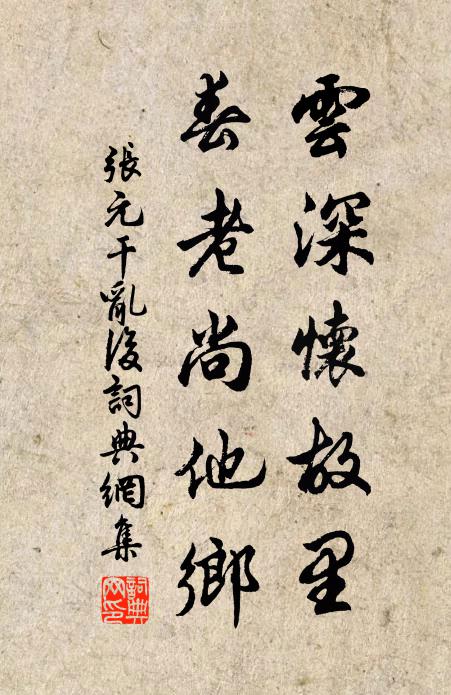 雲深懷故里
春老尚他鄉
張元干亂後詞典網集
詞典網印